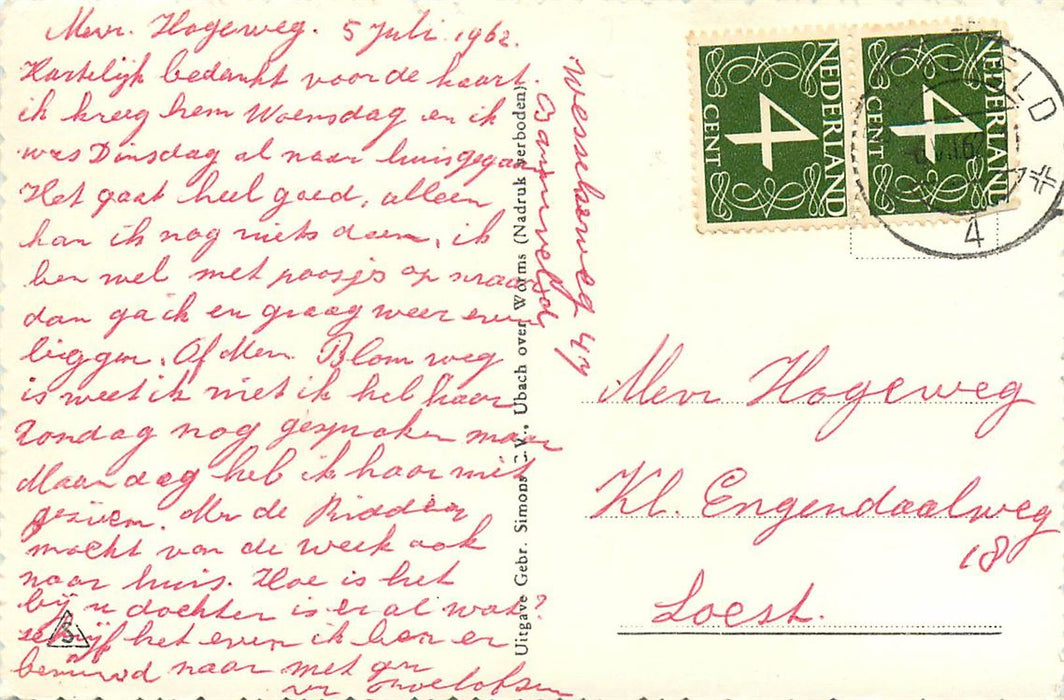 Mevr. Hogeweg. 5 Juli 1962.
Hartelijk bedankt voor de kaart.
ik kreeg hem Woensdag en ik
was Dinsdag al naar huis gegaan
Het gaat heel goed, alleen
kan ik nog niets doen, ik
ben wel met poosjes op maar
dan ga ik en graag weer even
liggen. Of Mevr Blom weg
is weet ik niet ik heb haar
Zondag nog gesproken maar
Maandag heb ik haar niet
gezien. Mr de Ridder
mocht van de week ook
naar huis. Hoe is het
bij u dochter is er al wat?
schrijf het even ik ben er
benieuwd naar met
Wesselseweg 47
Barneveld
Uitgave Gebr. Simons .V., Ubach over Worms (Nadruk verboden)
S
NEDERLAND
4
CENT
NEDERLAND
4
CENT
ELD
4
Mevr Hogeweg
Kl. Engendaalweg
18
Soest.